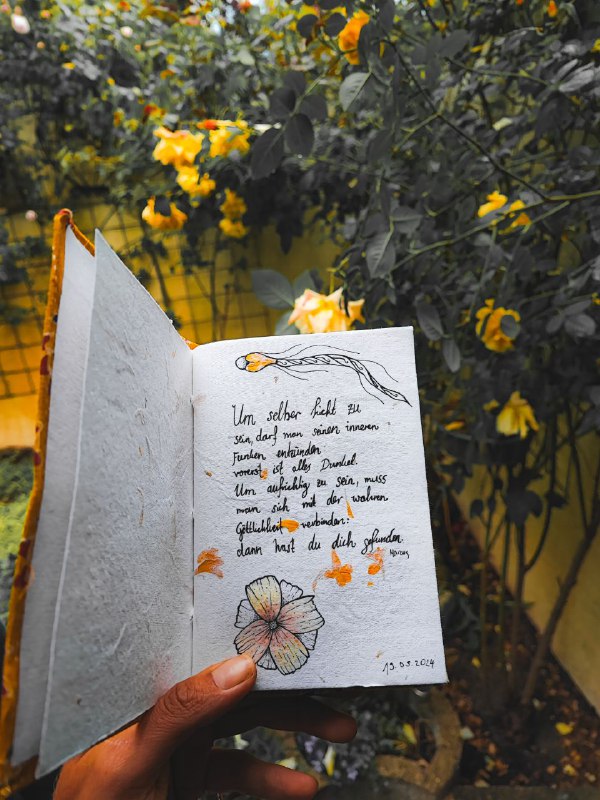 Um selber Licht zu
sein, darf man seinen inneren
Funken entzünden
vorerst ist alles Dunkel.
Um aufrichtig zu sein, muss
man sich mit der wahren
Göttlichkeit verbinden:
dann hast du dich gefunden.
19.09.2024